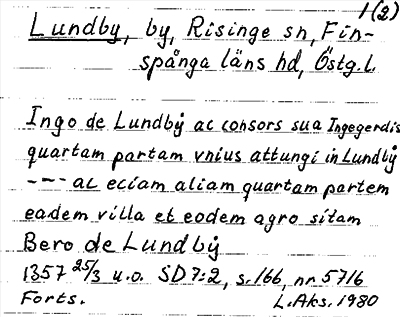 1(2)
Lundby, by, Risinge sn, Fin-
spånga läns hd, Östg.l.
Ingo de Lundbÿ ac consors sua Ingegerdis
quartam partam vnius attungi in Lundbÿ
--- ac eciam aliam quartam partem
eadem villa et eodem agro sitam
Bero de Lundbÿ
1357 25/3 u.o. SD 7:2, s.166, nr 5716
Forts. L.Aks. 1980